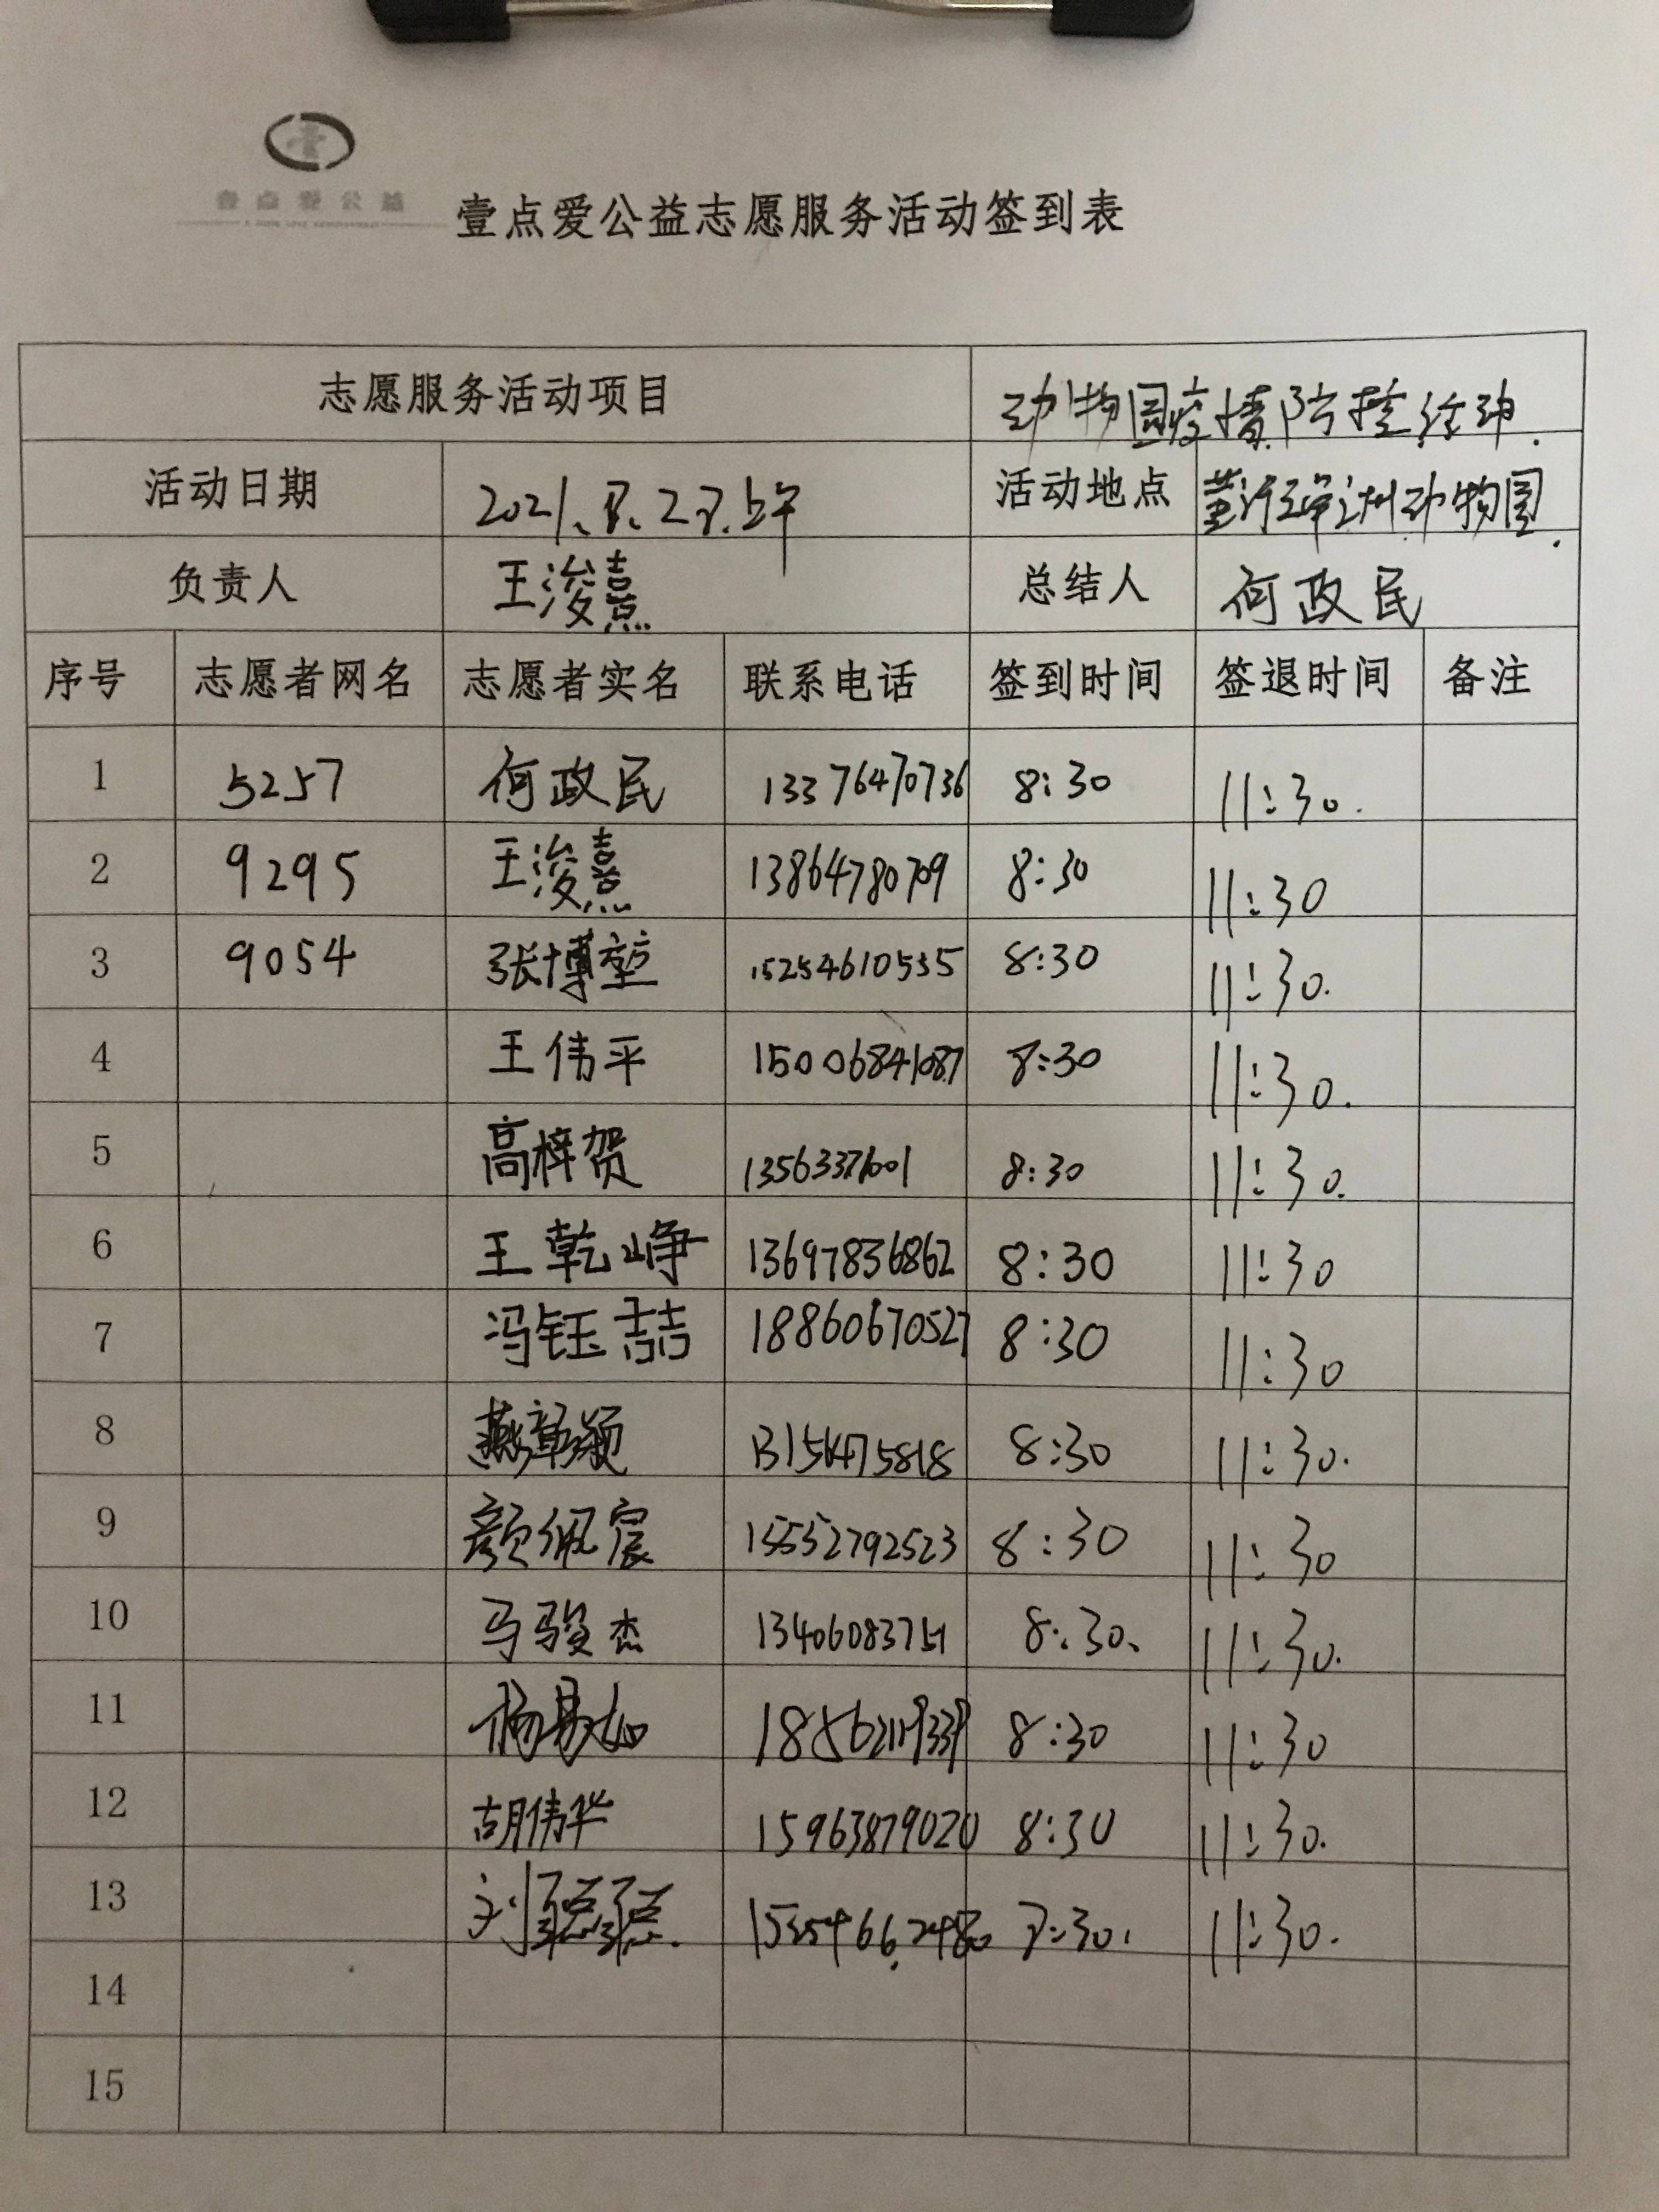 壹点爱公益
壹点爱公益志愿服务活动签到表
志愿服务活动项目 动物园疫情防控活动.
活动日期 2021.8.28.上午 活动地点 动物园.
负责人 王浚熹 总结人 何政民
序号 志愿者网名 志愿者实名 联系电话 签到时间 签退时间 备注
1 5257 何政民 13376470736 8:30 11:30.
2 9295 王浚熹 13864780709 8:30 11:30
3 9054 张博堃 15254610535 8:30 11:30.
4 王伟平 15006841087 8:30 11:30.
5 高梓贺 13563371601 8:30 11:30.
6 王乾峥 13697836862 8:30 11:30
7 冯钰喆 18860670527 8:30 11:30
8 燕章颖 8:30 11:30.
9 颜佩宸 15552792523 8:30 11:30
10 马骏杰 13406083751 8:30、 11:30.
11 杨易如 8:30 11:30
12 胡伟华 15963879020 8:30 11:30.
13 刘聪聪. 8:30. 11:30.
14
15